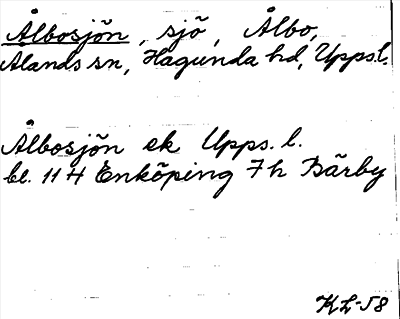 Ålbosjön, sjö, Ålbo,
Ålands sn, Hagunda hd, Upps.l.
Ålbosjön ek Upps. l.
bl. 11 H Enköping 7 h Bärby
KL-58